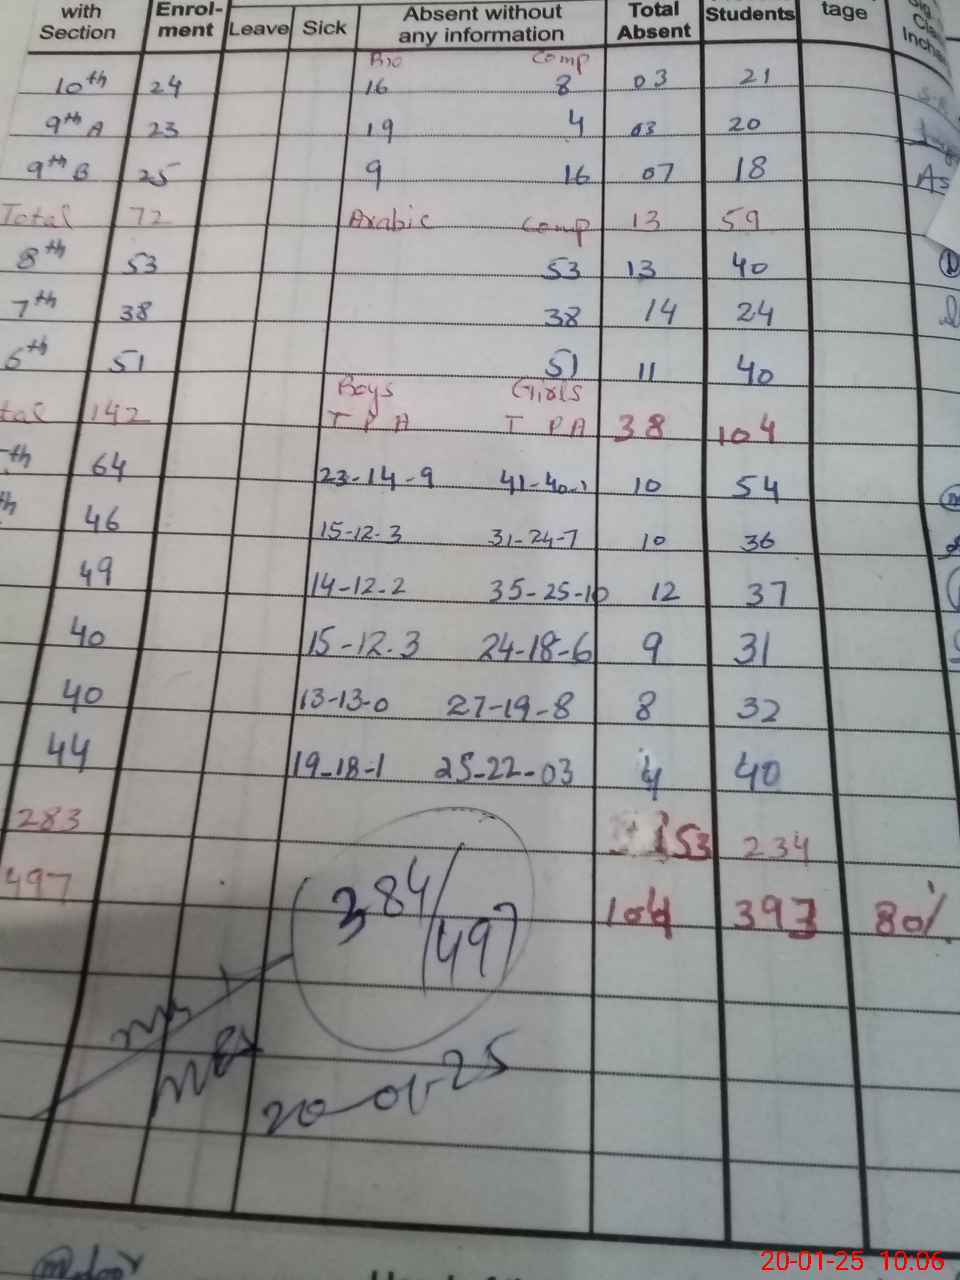 with Section Enrol-ment Leave Sick Absent without any information Total Absent Students tage
Bio Comp
10th 24 16 8 03 21
9th A 23 19 4 03 20
9th B 25 9 16 07 18
Total 72 Arabic Comp 13 59
8th 53 53 13 40
7th 38 38 14 24
6th 51 51 11 40
Boys Girls
tal 142 T P A T P A 38 104
th 64 23-14-9 41-40-1 10 54
th 46 15-12-3 31-24-7 10 36
49 14-12-2 35-25-10 12 37
40 15-12-3 24-18-6 9 31
40 13-13-0 27-19-8 8 32
44 19-18-1 25-22-03 4 40
283 53 234
497 104 393 80%
384/497
20-01-25
20-01-25 10:06